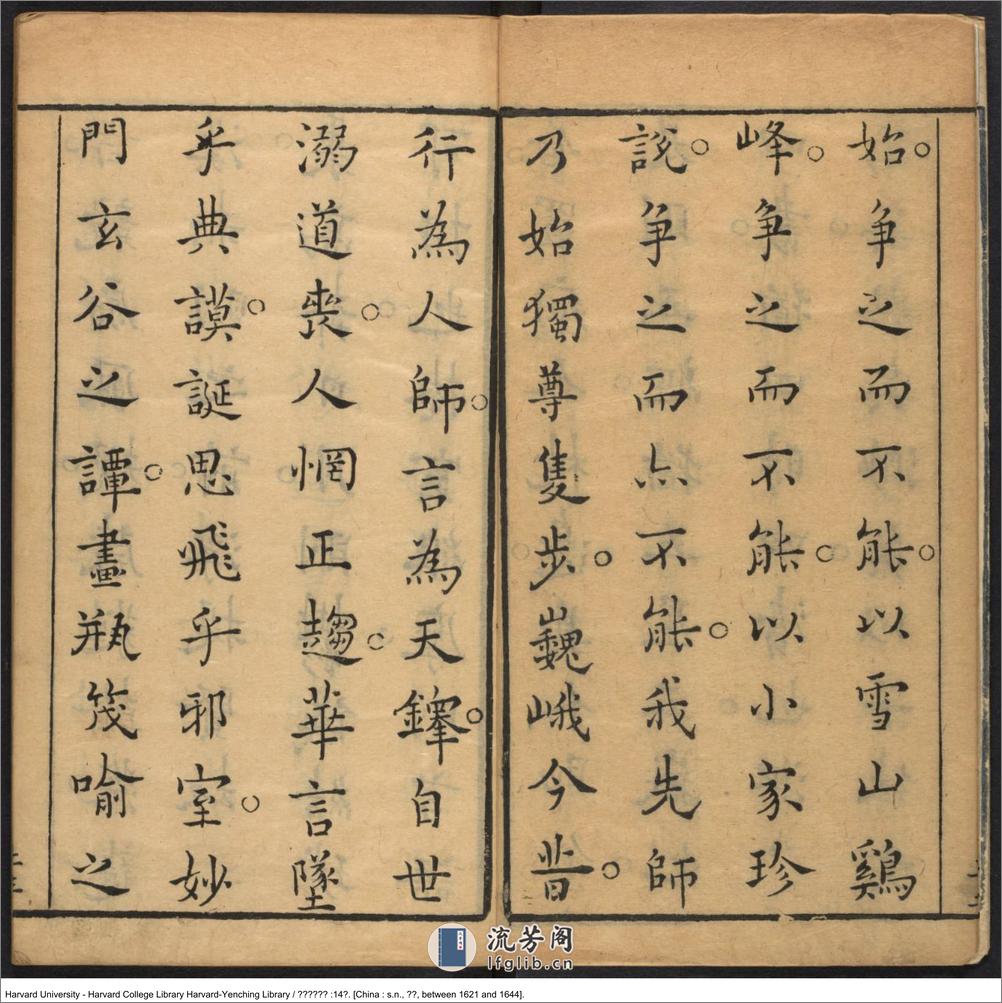 始争之而不能以雪山鷄
峰争之而不能以小家珍
說争之而亦不能我先師
乃始獨尊隻步巍峨今昔
行為人師言為天鐸自世
溺道喪人惘正趨華言墜
乎典謨誕思飛乎邪室妙
門玄谷之譚畫瓶筏喻之
流芳阁
lfglib.cn
Harvard University - Harvard College Library Harvard-Yenching Library / ?????? :14?. [China : s.n., ??, between 1621 and 1644].